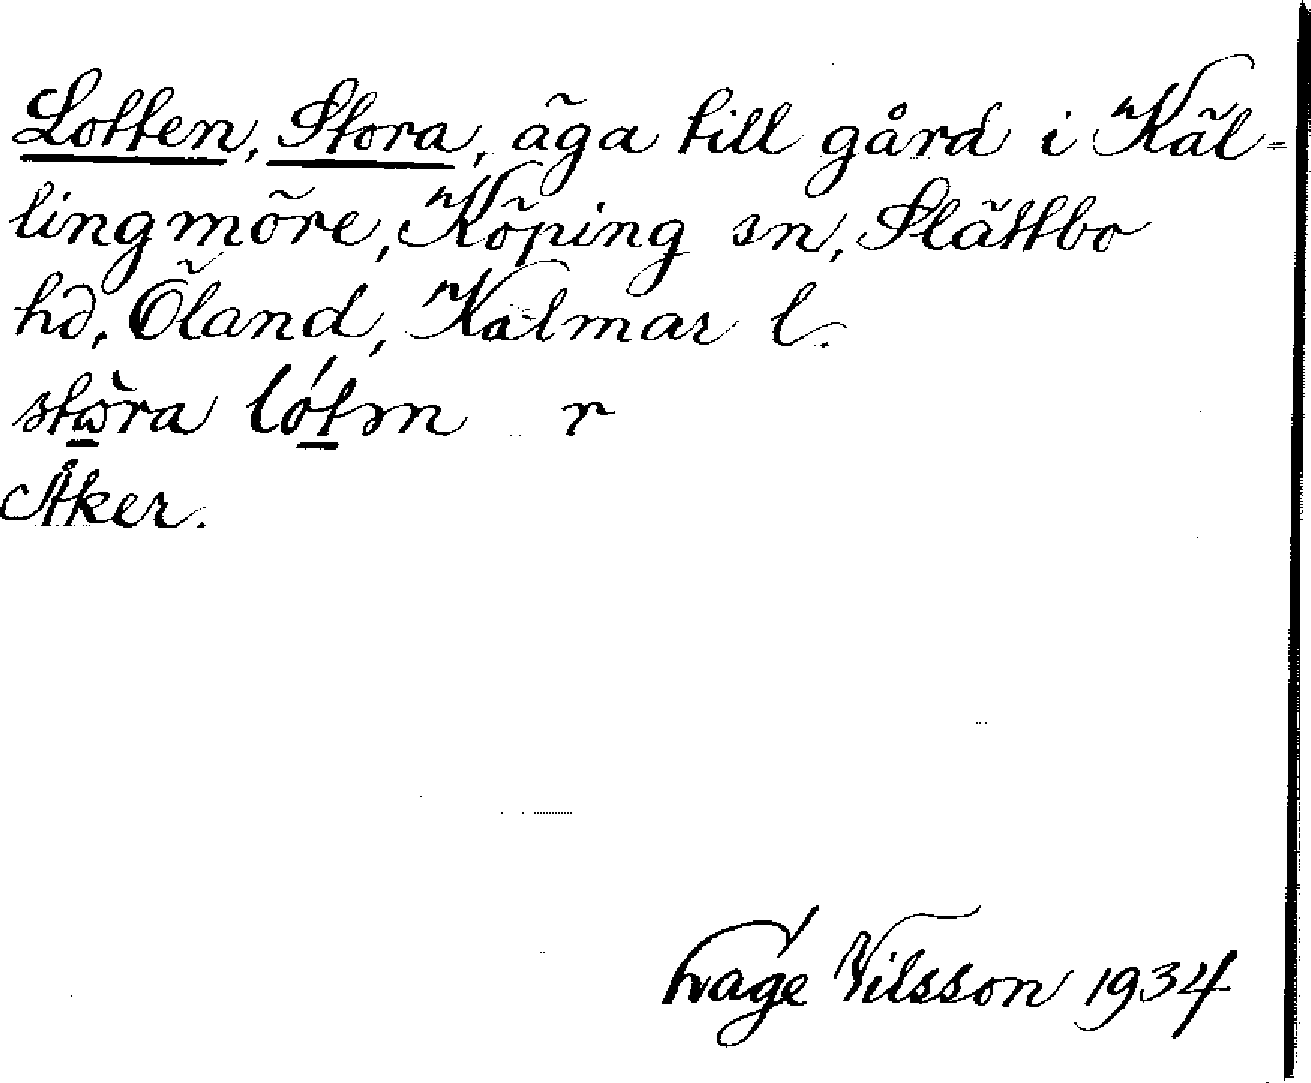 Lotten, Stora, äga till gård i Käl-
lingmöre, Köping sn, Slättbo
hd, Öland, Kalmar l.
stòra lót̲m r
Åker.
Tvage Nilsson 1934